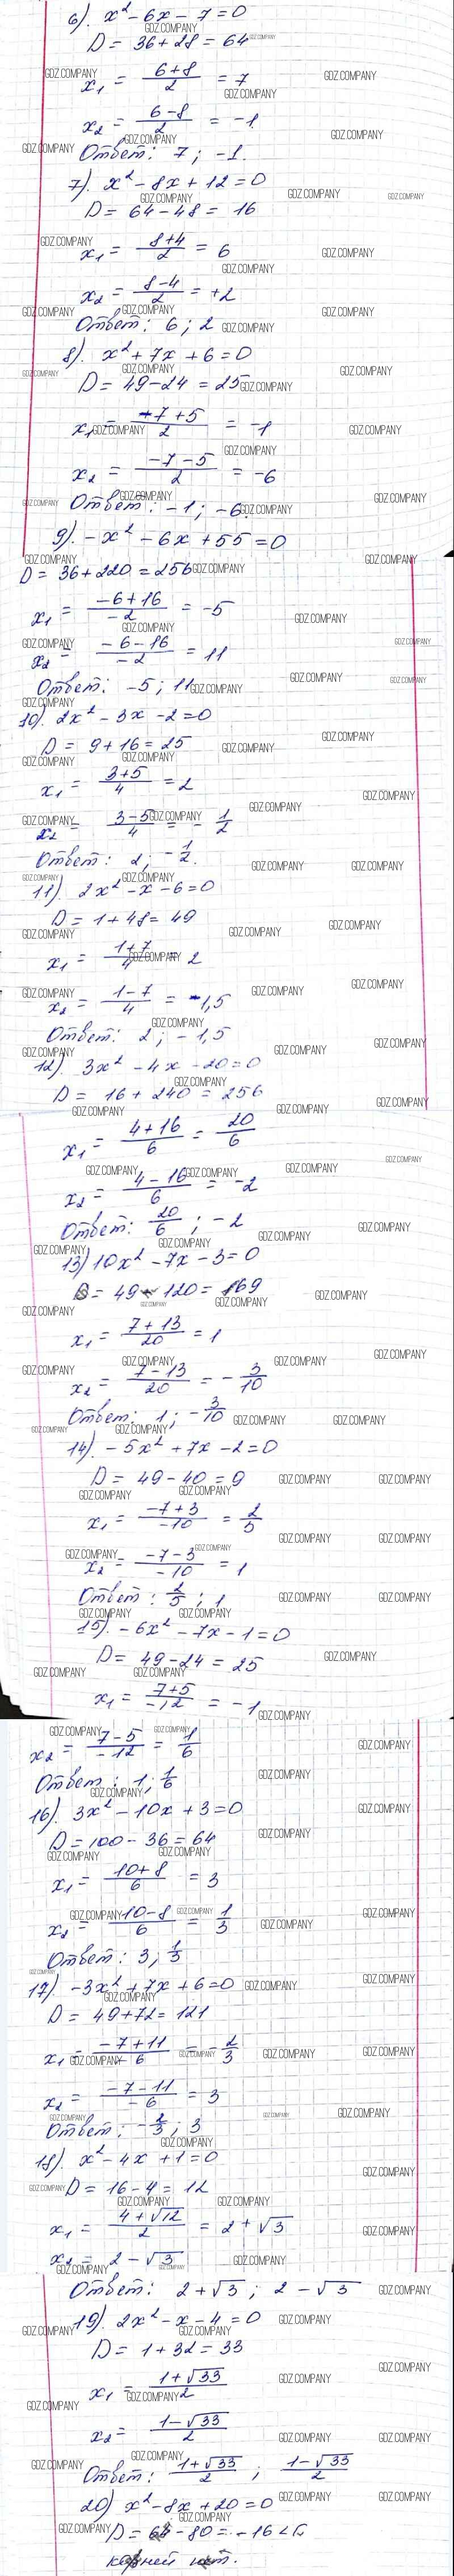 6). x² - 6x - 7 = 0
D = 36 + 28 = 64
x₁ = (6+8)/2 = 7
x₂ = (6-8)/2 = -1
Ответ: 7; -1.
7). x² - 8x + 12 = 0
D = 64 - 48 = 16
x₁ = (8+4)/2 = 6
x₂ = (8-4)/2 = +2
Ответ: 6; 2
8). x² + 7x + 6 = 0
D = 49 - 24 = 25
x₁ = (-7+5)/2 = -1
x₂ = (-7-5)/2 = -6
Ответ: -1; -6.
9). -x² - 6x + 55 = 0
D = 36 + 220 = 256
x₁ = (-6+16)/-2 = -5
x₂ = (-6-16)/-2 = 11
Ответ: -5; 11
10). 2x² - 3x - 2 = 0
D = 9 + 16 = 25
x₁ = (3+5)/4 = 2
x₂ = (3-5)/4 = -1/2
Ответ: 2; -1/2.
11). 2x² - x - 6 = 0
D = 1 + 48 = 49
x₁ = (1+7)/4 = 2
x₂ = (1-7)/4 = -1,5
Ответ: 2; -1,5
12). 3x² - 4x - 20 = 0
D = 16 + 240 = 256
x₁ = (4+16)/6 = 20/6
x₂ = (4-16)/6 = -2
Ответ: 20/6; -2
13) 10x² - 7x - 3 = 0
D = 49 + 120 = 169
x₁ = (7+13)/20 = 1
x₂ = (7-13)/20 = -3/10
Ответ: 1; -3/10
14). -5x² + 7x - 2 = 0
D = 49 - 40 = 9
x₁ = (-7+3)/-10 = 2/5
x₂ = (-7-3)/-10 = 1
Ответ: 2/5; 1
15). -6x² - 7x - 1 = 0
D = 49 - 24 = 25
x₁ = (7+5)/-12 = -1
x₂ = (7-5)/-12 = 1/6
Ответ: 1; 1/6
16). 3x² - 10x + 3 = 0
D = 100 - 36 = 64
x₁ = (10+8)/6 = 3
x₂ = (10-8)/6 = 1/3
Ответ: 3; 1/3
17). -3x² + 7x + 6 = 0
D = 49 + 72 = 121
x₁ = (-7+11)/-6 = -2/3
x₂ = (-7-11)/-6 = 3
Ответ: -2/3; 3
18). x² - 4x + 1 = 0
D = 16 - 4 = 12
x₁ = (4+√12)/2 = 2 + √3
x₂ = 2 - √3
Ответ: 2 + √3; 2 - √3
19). 2x² - x - 4 = 0
D = 1 + 32 = 33
x₁ = (1+√33)/2
x₂ = (1-√33)/2
Ответ: (1+√33)/2; (1-√33)/2
20) x² - 8x + 20 = 0
D = 64 - 80 = -16 <
корней нет.
GDZ.COMPANY